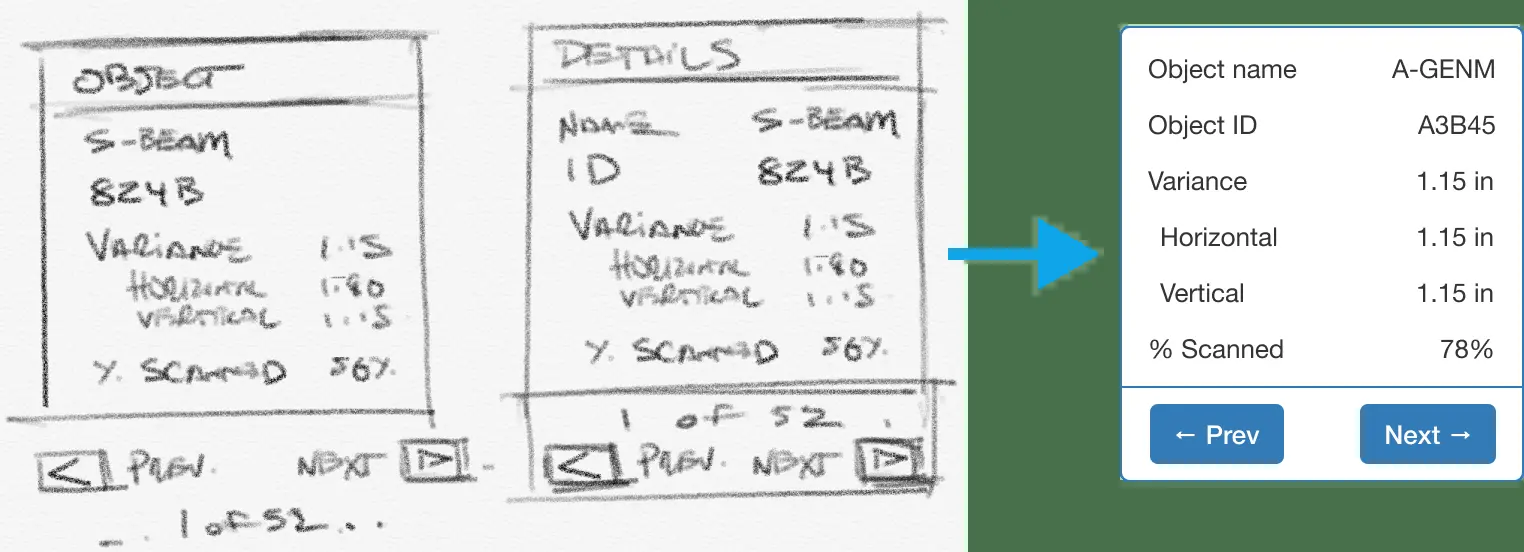 OBJECT
S-BEAM
824B
VARIANCE 1.15
HORIZONTAL 1.80
VERTICAL 1.15
% SCANNED 56%
< PREV. NEXT >
1 of 52
DETAILS
NAME S-BEAM
ID 824B
VARIANCE 1.15
HORIZONTAL 1.80
VERTICAL 1.15
% SCANNED 56%
1 of 52
< PREV. NEXT >
Object name A-GENM
Object ID A3B45
Variance 1.15 in
Horizontal 1.15 in
Vertical 1.15 in
% Scanned 78%
← Prev Next →